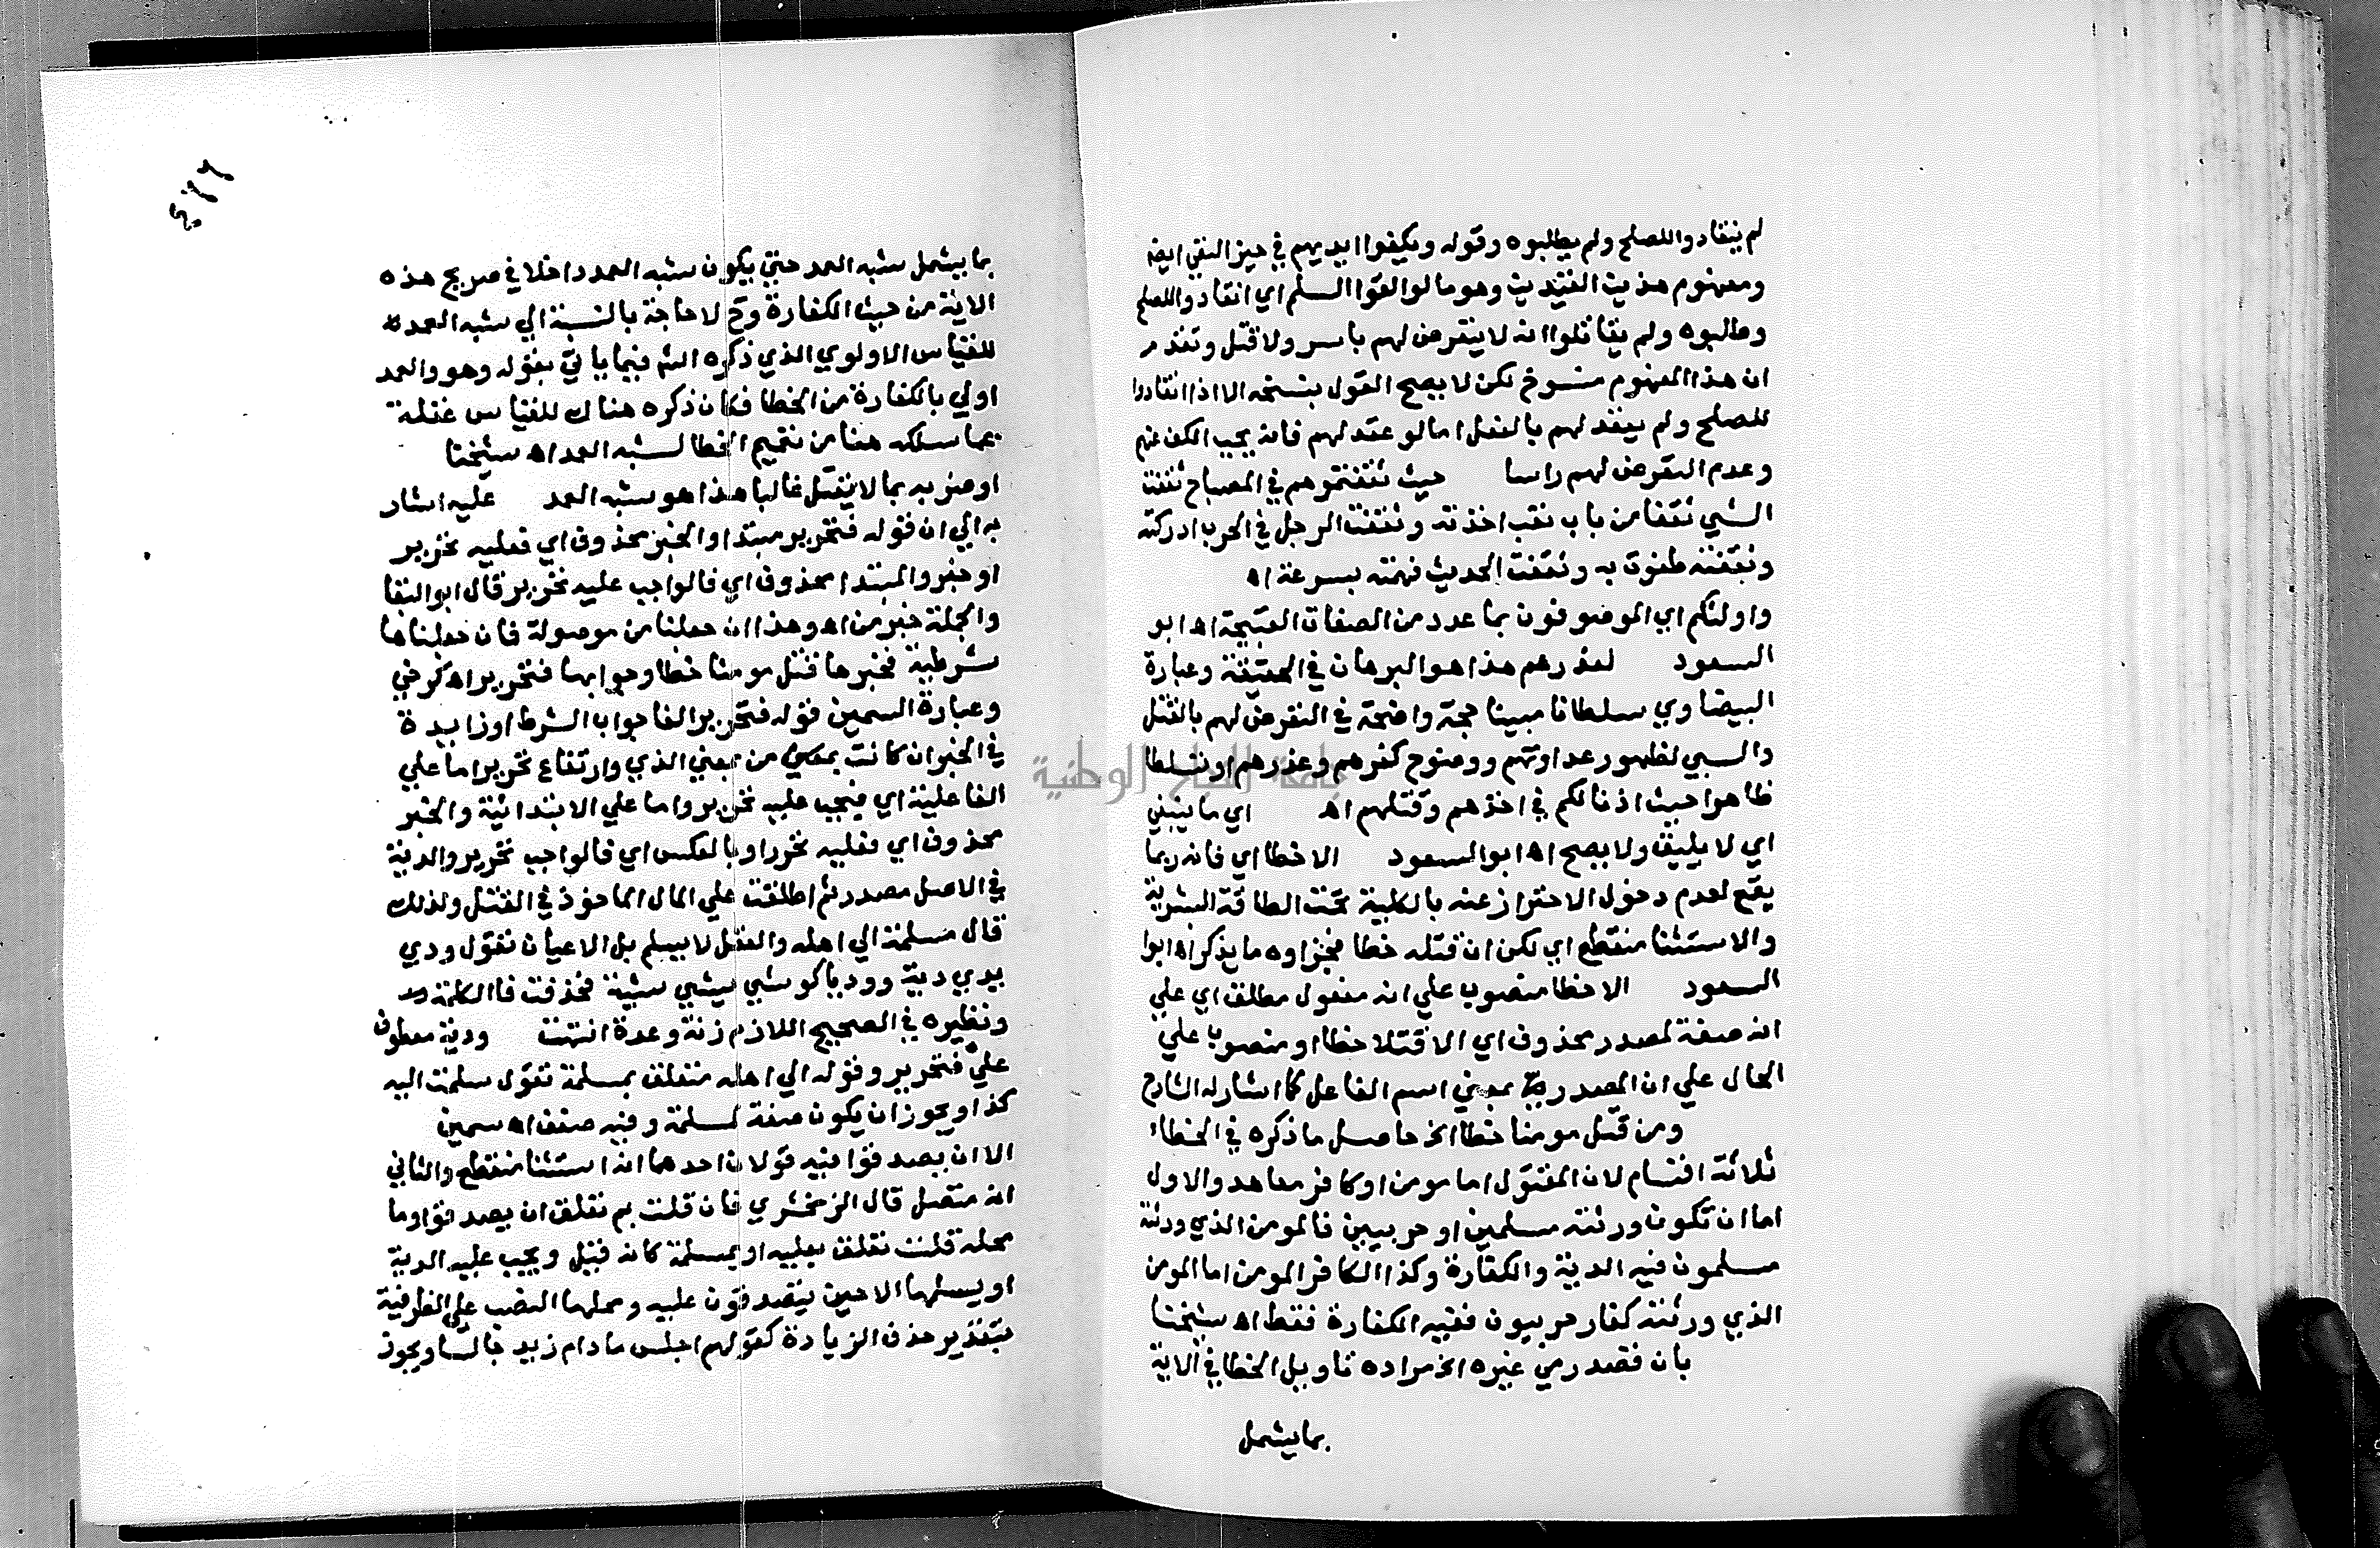 لم ينقادوا للصلح ولم يطلبوه وقوله ويكفوا ايديهم في حيز النفي ايضا
ومفهوم هذين القيدين وهو ما لو القوا السلم اي انقادوا للصلح
وطلبوه ولم يقاتلوا انه لا يتعرض لهم باسر ولا قتل وتقدم
ان هذا المفهوم منسوخ لكن لا يصح القول بنسخه الا اذا انقادوا
للصلح ولم يعقد لهم بالفعل اما لو عقد لهم فانه يجب الكف عنهم
وعدم التعرض لهم راسا حيث ثقفتموهم في المصباح ثقفت
الشي ثقفا من باب تعب اخذته وثقفت الرجل في الحرب ادركته
وثقفته ظفرت به وثقفت الحديث فهمته بسرعة اه
واولئكم اي الموصوفون بما عدد من الصفات القبيحة اه ابو
السعود لغدرهم هذا هو البرهان في الحقيقة وعبارة
البيضاوي سلطانا مبينا حجة واضحة في التعرض لهم بالقتل
والسبي لظهور عداوتهم ووضوح كفرهم وغدرهم او تسلطا
ظاهرا حيث اذنا لكم في اخذهم وقتلهم اه اي ما ينبغي
اي لا يليق ولا يصح اه ابو السعود الا خطا اي فانه ربما
يقع لعدم دخول الاحتراز عنه بالكلية تحت الطاقة البشرية
والاستثنا منقطع اي لكن ان قتله خطا فجزاوه ما يذكر اه ابوا
السعود الا خطا منصوب علي انه مفعول مطلق اي علي
انه صفة لمصدر محذوف اي الا قتلا خطا او منصوب علي
الحال علي ان المصدر بمعني اسم الفاعل كما اشار له الشارح
ومن قتل مومنا خطا الخ حاصل ما ذكره في الخطا
ثلاثة اقسام لان المقتول اما مومن او كافر معاهد والاول
اما ان تكون ورثته مسلمين او حربيين فالمومن الذي ورثته
مسلمون فيه الدية والكفارة وكذا الكافر المومن اما المومن
الذي ورثته كفار حربيون ففيه الكفارة فقط اه شيخنا
بان قصد رمي غيره الخ مراده تاويل الخطا في الاية
بما يشمل
٤٢٢
بما يشمل شبه العمد حتي يكون شبه العمد داخلا في صريح هذه
الاية من حيث الكفارة وح لا حاجة بالنسبة الي شبه العمد
للقياس الاولوي الذي ذكره الش فيما ياتي بقوله وهو والعمد
اولي بالكفارة من الخطا فكان ذكره هناك للقياس غفلة
عما سلكه هنا من تعميم الخطا لشبه العمد اه شيخنا
او ضربه بما لا يقتل غالبا هذا هو شبه العمد عليه اشار
به الي ان قوله فتحرير مبتدا والخبر محذوف اي فعليه تحرير
او خبر والمبتدا محذوف اي فالواجب عليه تحرير قال ابو البقا
والجملة خبر من اه وهذا ان جعلنا من موصولة فان جعلناها
شرطية فخبرها قتل مومنا خطا وجوابها فتحرير اه كرخي
وعبارة السمين قوله فتحرير الفا جواب الشرط او زايدة
في الخبر ان كانت بمعني من بمعني الذي وارتفاع تحرير اما علي
الفاعلية اي فيجب عليه تحرير واما علي الابتدائية والخبر
محذوف اي فعليه تحرير او بالعكس اي فالواجب تحرير والدية
في الاصل مصدر ثم اطلقت علي المال الماخوذ في القتل ولذلك
قال مسلمة الي اهله والفعل لا يسلم بل الاعيان تقول ودي
يدي دية ووديا كوشي يشي شية فحذفت فا الكلمة
ونظيره في الصحيح اللازم زنة وعدة انتهت ودية معطوف
علي فتحرير وقوله الي اهله متعلق بمسلمة تقول سلمت اليه
كذا ويجوز ان يكون صفة لمسلمة وفيه ضعف اه سمين
الا ان يصدقوا فيه قولان احدهما انه استثنا منقطع والثاني
انه متصل قال الزمخشري فان قلت بم تعلق ان يصدقوا وما
محله قلت تعلق بعليه او بمسلمة كانه قيل ويجب عليه الدية
او يسلمها الا حين يتصدقون عليه ومحلها النصب علي الظرفية
بتقدير حذف الزيادة كقولهم اجلس ما دام زيد جالسا ويجوز
جامعة النجاح الوطنية